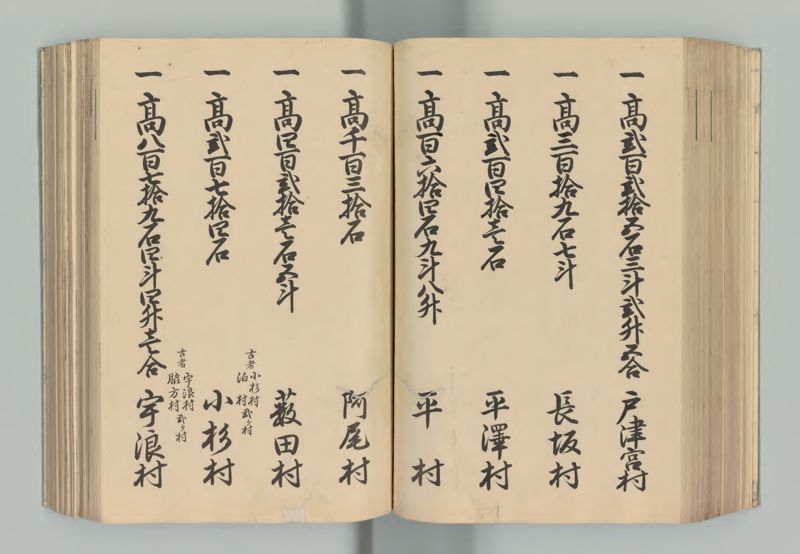 一 高弐百弐拾五石三斗弐升五合 戸津宮村
一 高三百拾九石七斗 長坂村
一 高弐百四拾壱石 平澤村
一 高百六拾四石九斗八升 平村
一 高千百三拾石 阿尾村
一 高四百弐拾壱石五斗 薮田村
古者小杉村
泊村弐ヶ村
一 高弐百七拾四石 小杉村
古者宇浪村
脇方村弐ヶ村
一 高八百七拾九石四斗四升壱合 宇浪村